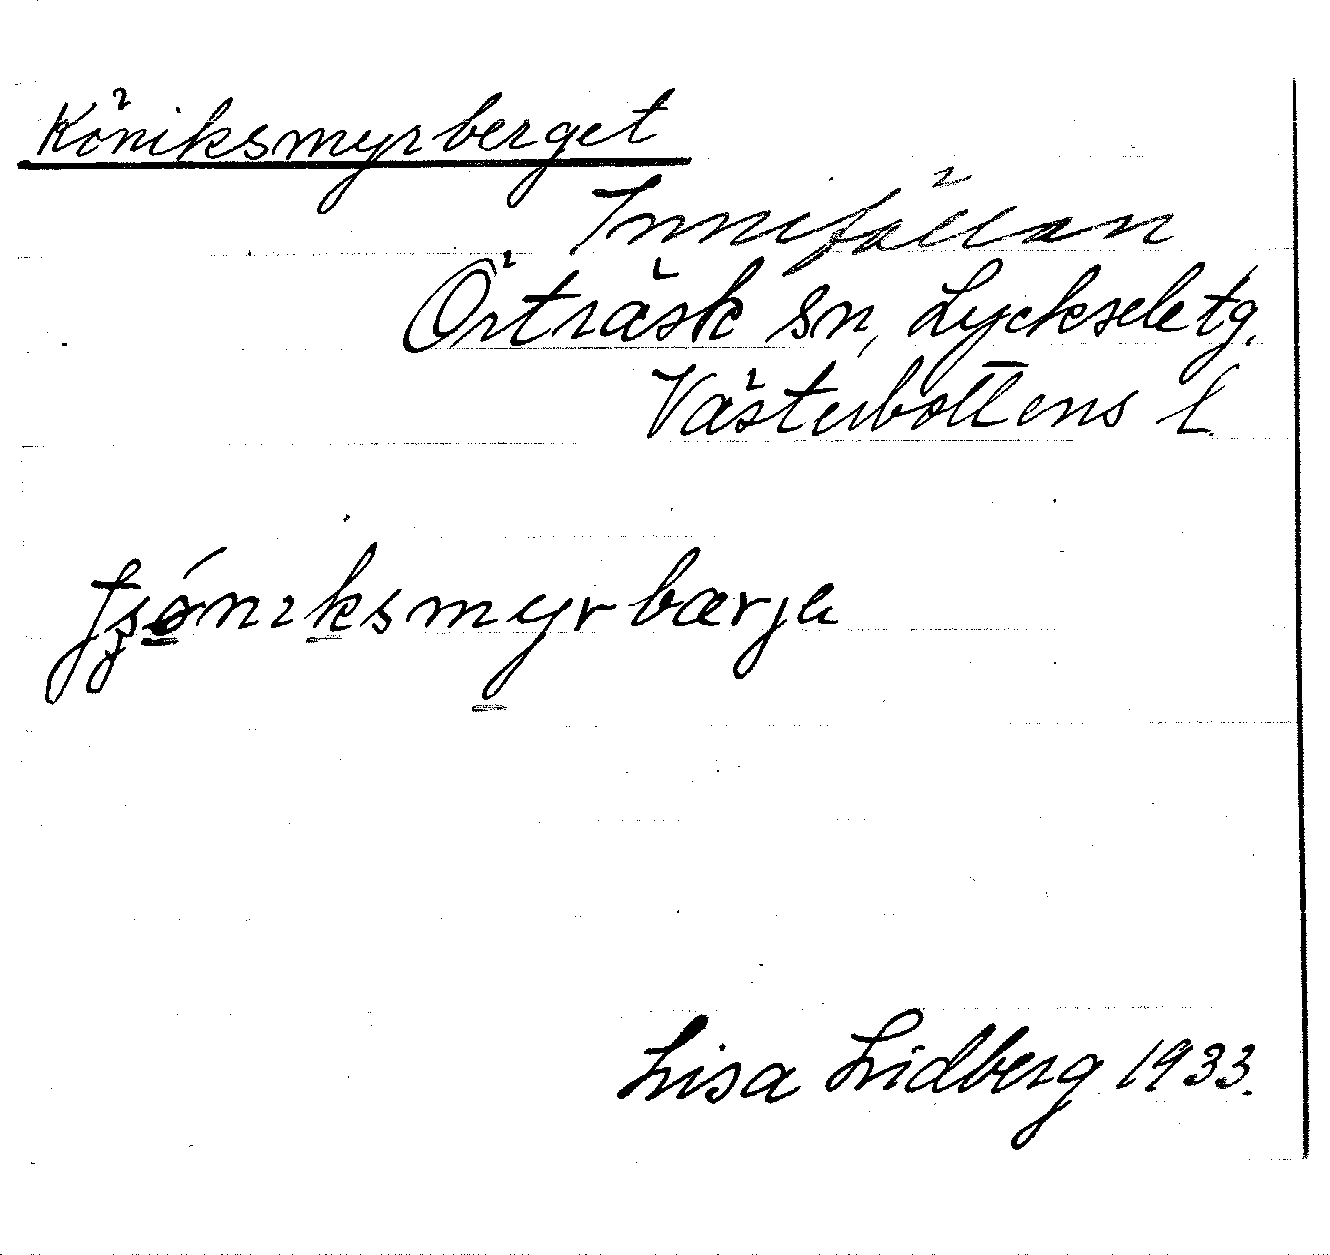 Köniksmyrberget
Innifällan
Örträsk sn, Lycksele tg.
Västerbottens l.
Lisa Lidberg 1933.